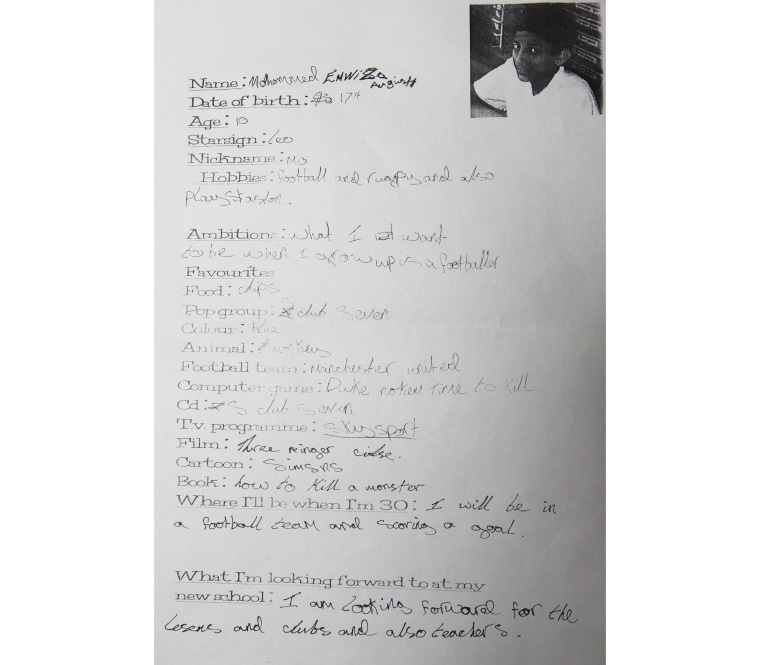 Name: Mohommed EMWiZa
August
Date of birth: 17th
Age: 10
Starsign: Leo
Nickname: Mo
Hobbies: football and rugpy and also
playstaston.
Ambition: what I want
to be when I grow up is a footballer
Favourites
Food: chips
Pop group: S club Seven
Colour: blue
Animal: monkeys
Football team: Manchester united
Computer game: Duke noken Time to Kill
Cd: S club Seven
T.v programme: sky sport
Film: Three
Cartoon: Simsns
Book: how to Kill a monster
Where I'll be when I'm 30: I will be in
a football team and scoring a goal.
What I'm looking forward to at my
new school: I am Looking forward for the
Lesens and clubs and also teachers.